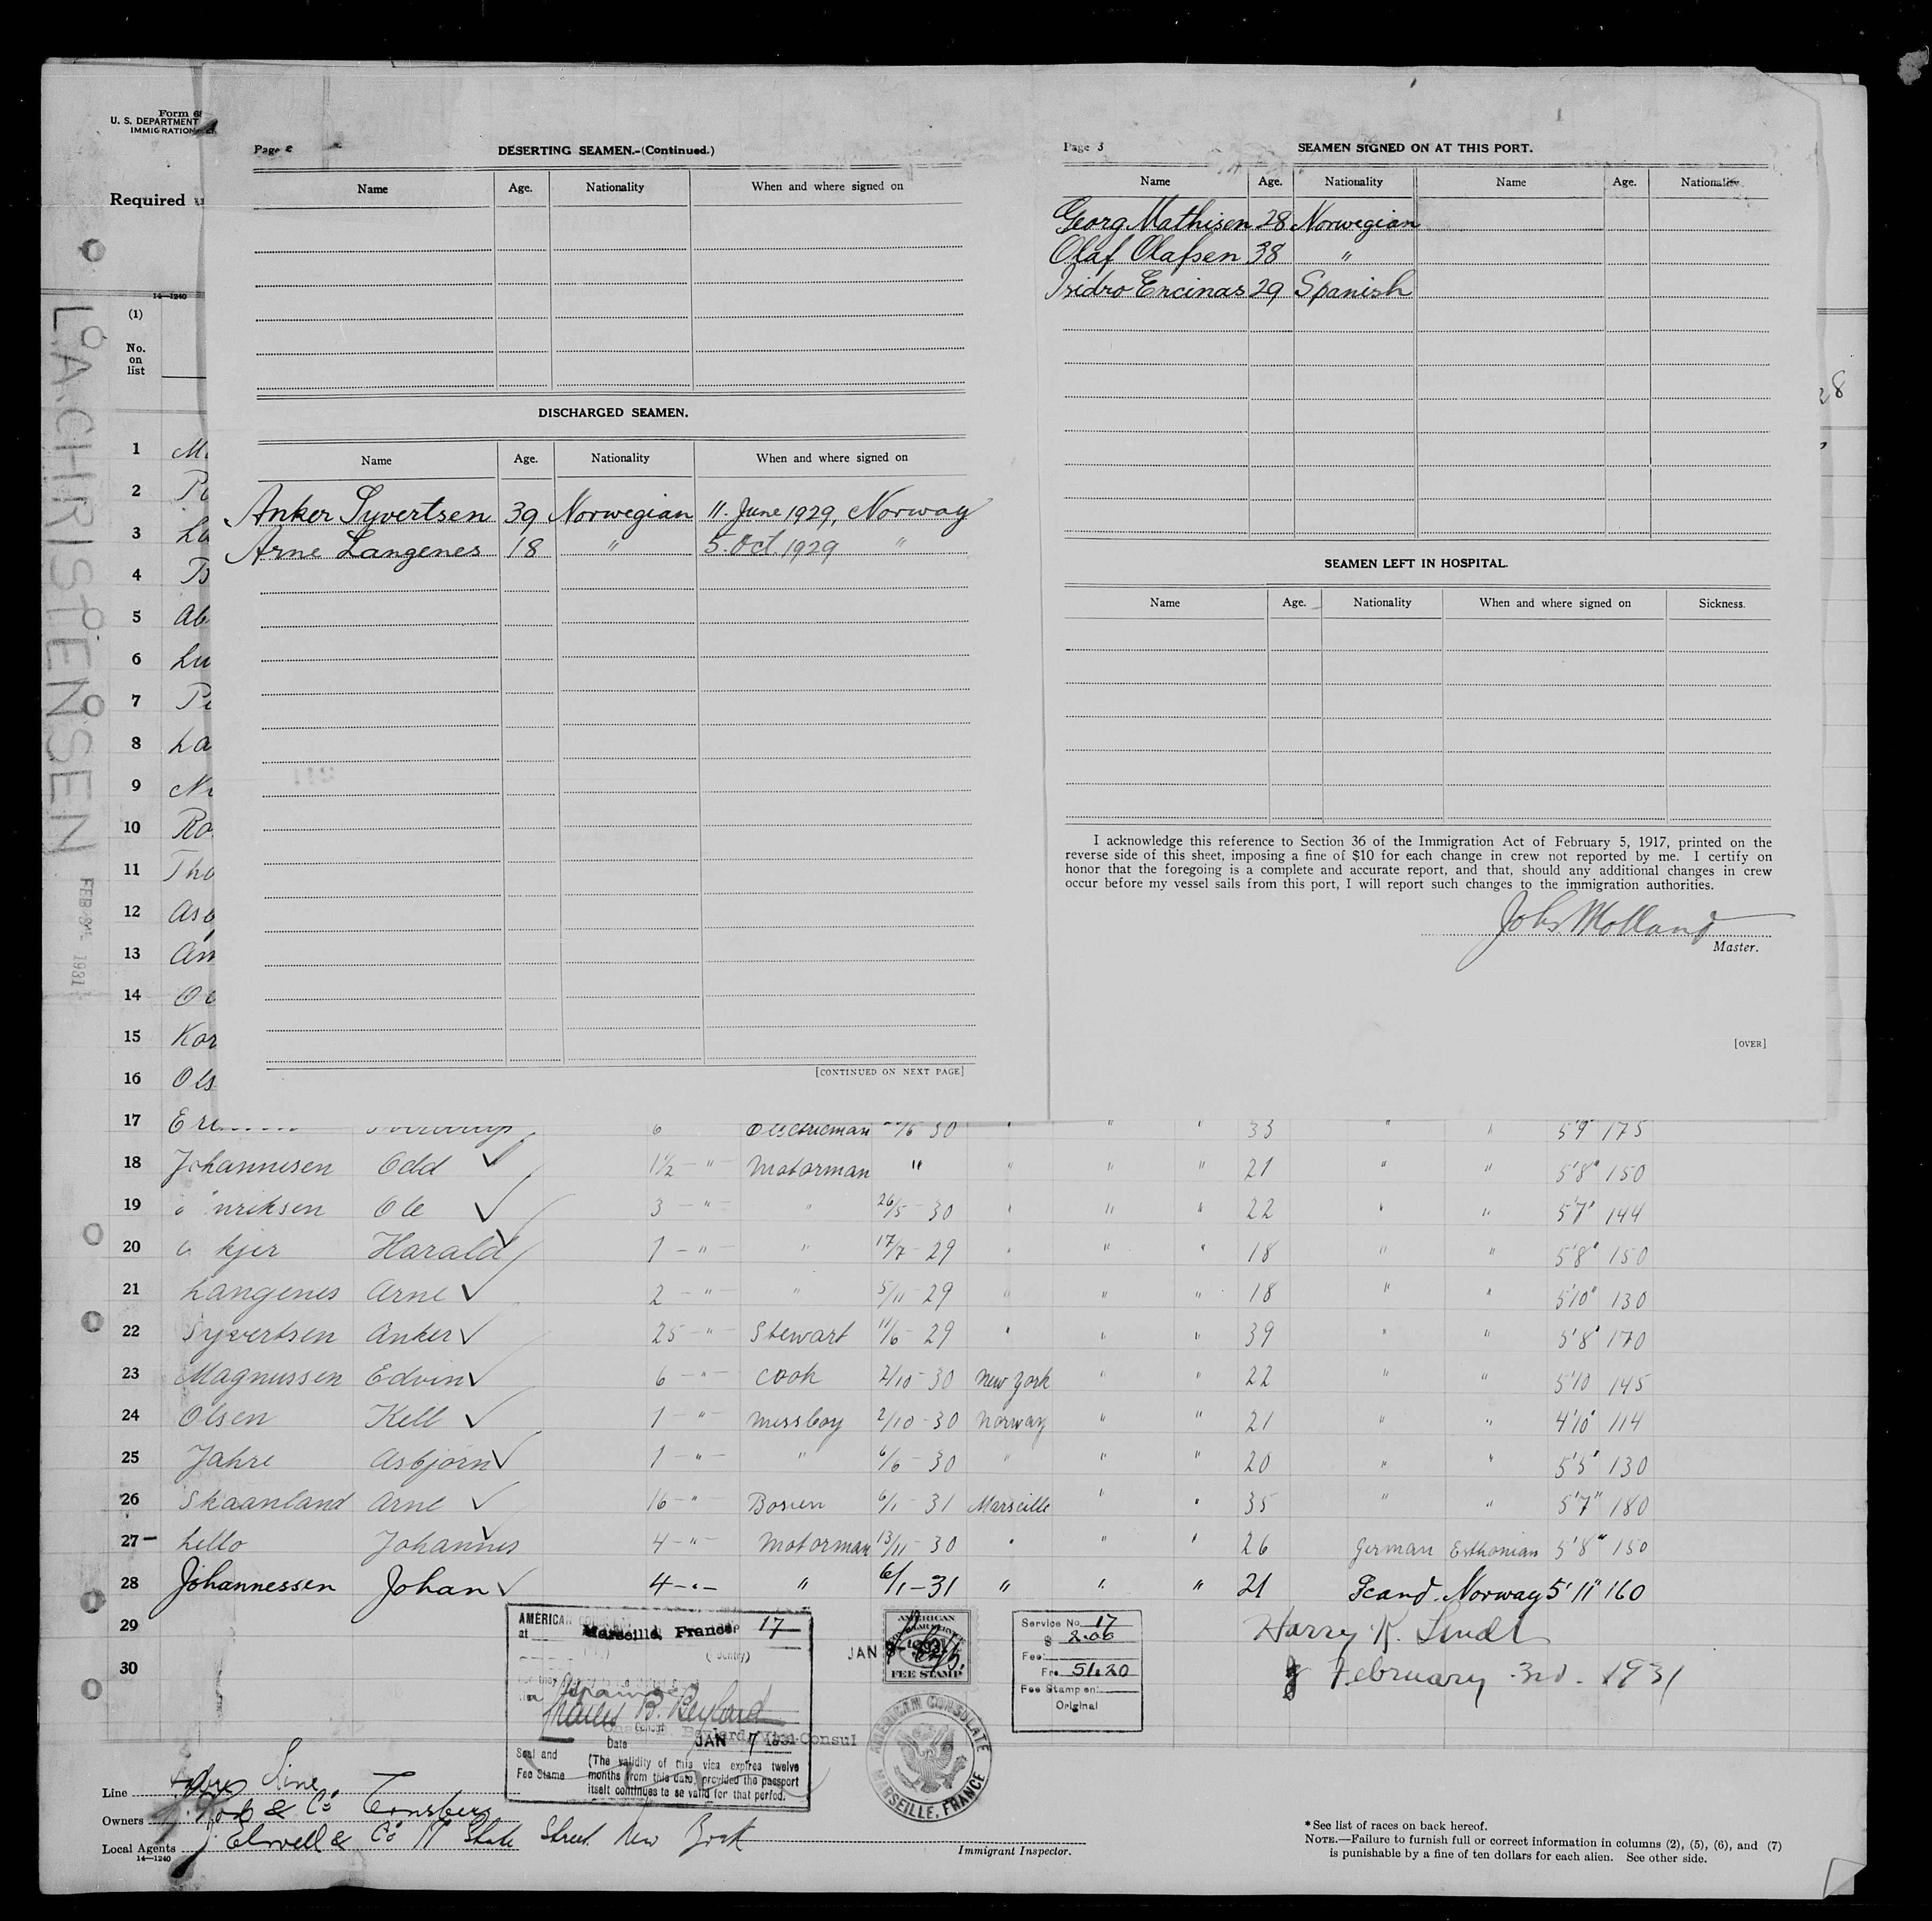 Form
U. S. DEPARTMENT
IMMIGRATION
Required
14—1240
(1)
No.
on
list
LA CHRISTENSEN FEB 1931
Page
DESERTING SEAMEN.-(Continued.)
Name Age. Nationality When and where signed on
DISCHARGED SEAMEN.
Name Age. Nationality When and where signed on
Anker Syvertsen 39 Norwegian 11. June 1929, Norway
Arne Langenes 18 " 5. Oct 1929 "
[CONTINUED ON NEXT PAGE]
Page 3
SEAMEN SIGNED ON AT THIS PORT.
Name Age. Nationality Name Age. Nationality
Georg Mathisen 28 Norwegian
Olaf Olafsen 38 "
Isidro Encinas 29 Spanish
SEAMEN LEFT IN HOSPITAL.
Name Age. Nationality When and where signed on Sickness.
I acknowledge this reference to Section 36 of the Immigration Act of February 5, 1917, printed on the
reverse side of this sheet, imposing a fine of $10 for each change in crew not reported by me. I certify on
honor that the foregoing is a complete and accurate report, and that, should any additional changes in crew
occur before my vessel sails from this port, I will report such changes to the immigration authorities.
Master.
[OVER]
1
2
3
4
5
6
7
8
9
10
11
12
13
14
15
16
17 6 30 " " " 33 " " 5'9" 175
18 Johannesen Odd 1½ — " — Motorman " " " " 21 " " 5'8" 150
19 Ole 3 — " — " 26/5 - 30 " " " 22 " " 5'7" 144
20 Harald 1 — " — " 17/7 - 29 " " " 18 " " 5'8" 150
21 Langenes Arne 2 — " — " 5/11 - 29 " " " 18 " " 5'10" 130
22 Syvertsen Anker 25 — " — Stewart 11/6 - 29 " " " 39 " " 5'8" 170
23 Magnussen Edvin 6 — " — Cook 2/10 - 30 New York " 22 " " 5'10 145
24 Olsen Kell 1 — " — Messboy 2/10 - 30 Norway " " 21 " " 4'10" 114
25 Jahre Asbjørn 1 — " — " 6/6 - 30 " " " 20 " " 5'5" 130
26 Skaanland Arne 16 — " — Bosun 6/1 - 31 Marseille " " 35 " " 5'7" 180
27 Lello Johannes 4 — " — Motorman 13/11 - 30 " " " 26 German Esthonian 5'8" 150
28 Johannessen Johan 4 — " — " 6/1 - 31 " " " 21 Scand. Norway 5'11" 160
29
30
AMERICAN
at Marseille, France 17
(Country)
Date JAN 7 1931
Vice Consul
Seal and
Fee Stamp
(The validity of this visa expires twelve
months from this date, provided the passport
itself continues to be valid for that period.
JAN
AMERICAN
FEE STAMP
AMERICAN CONSULATE
MARSEILLE, FRANCE
Service No. 17
$ 2.06
Fee:
Frs 51.20
Fee Stamp on:
Original
Harry K.
February 3rd. 1931
Line Line
Owners & Co
Local Agents Elwell & Co 17 State Street New York
14—1240
Immigrant Inspector.
*See list of races on back hereof.
NOTE.—Failure to furnish full or correct information in columns (2), (5), (6), and (7)
is punishable by a fine of ten dollars for each alien. See other side.